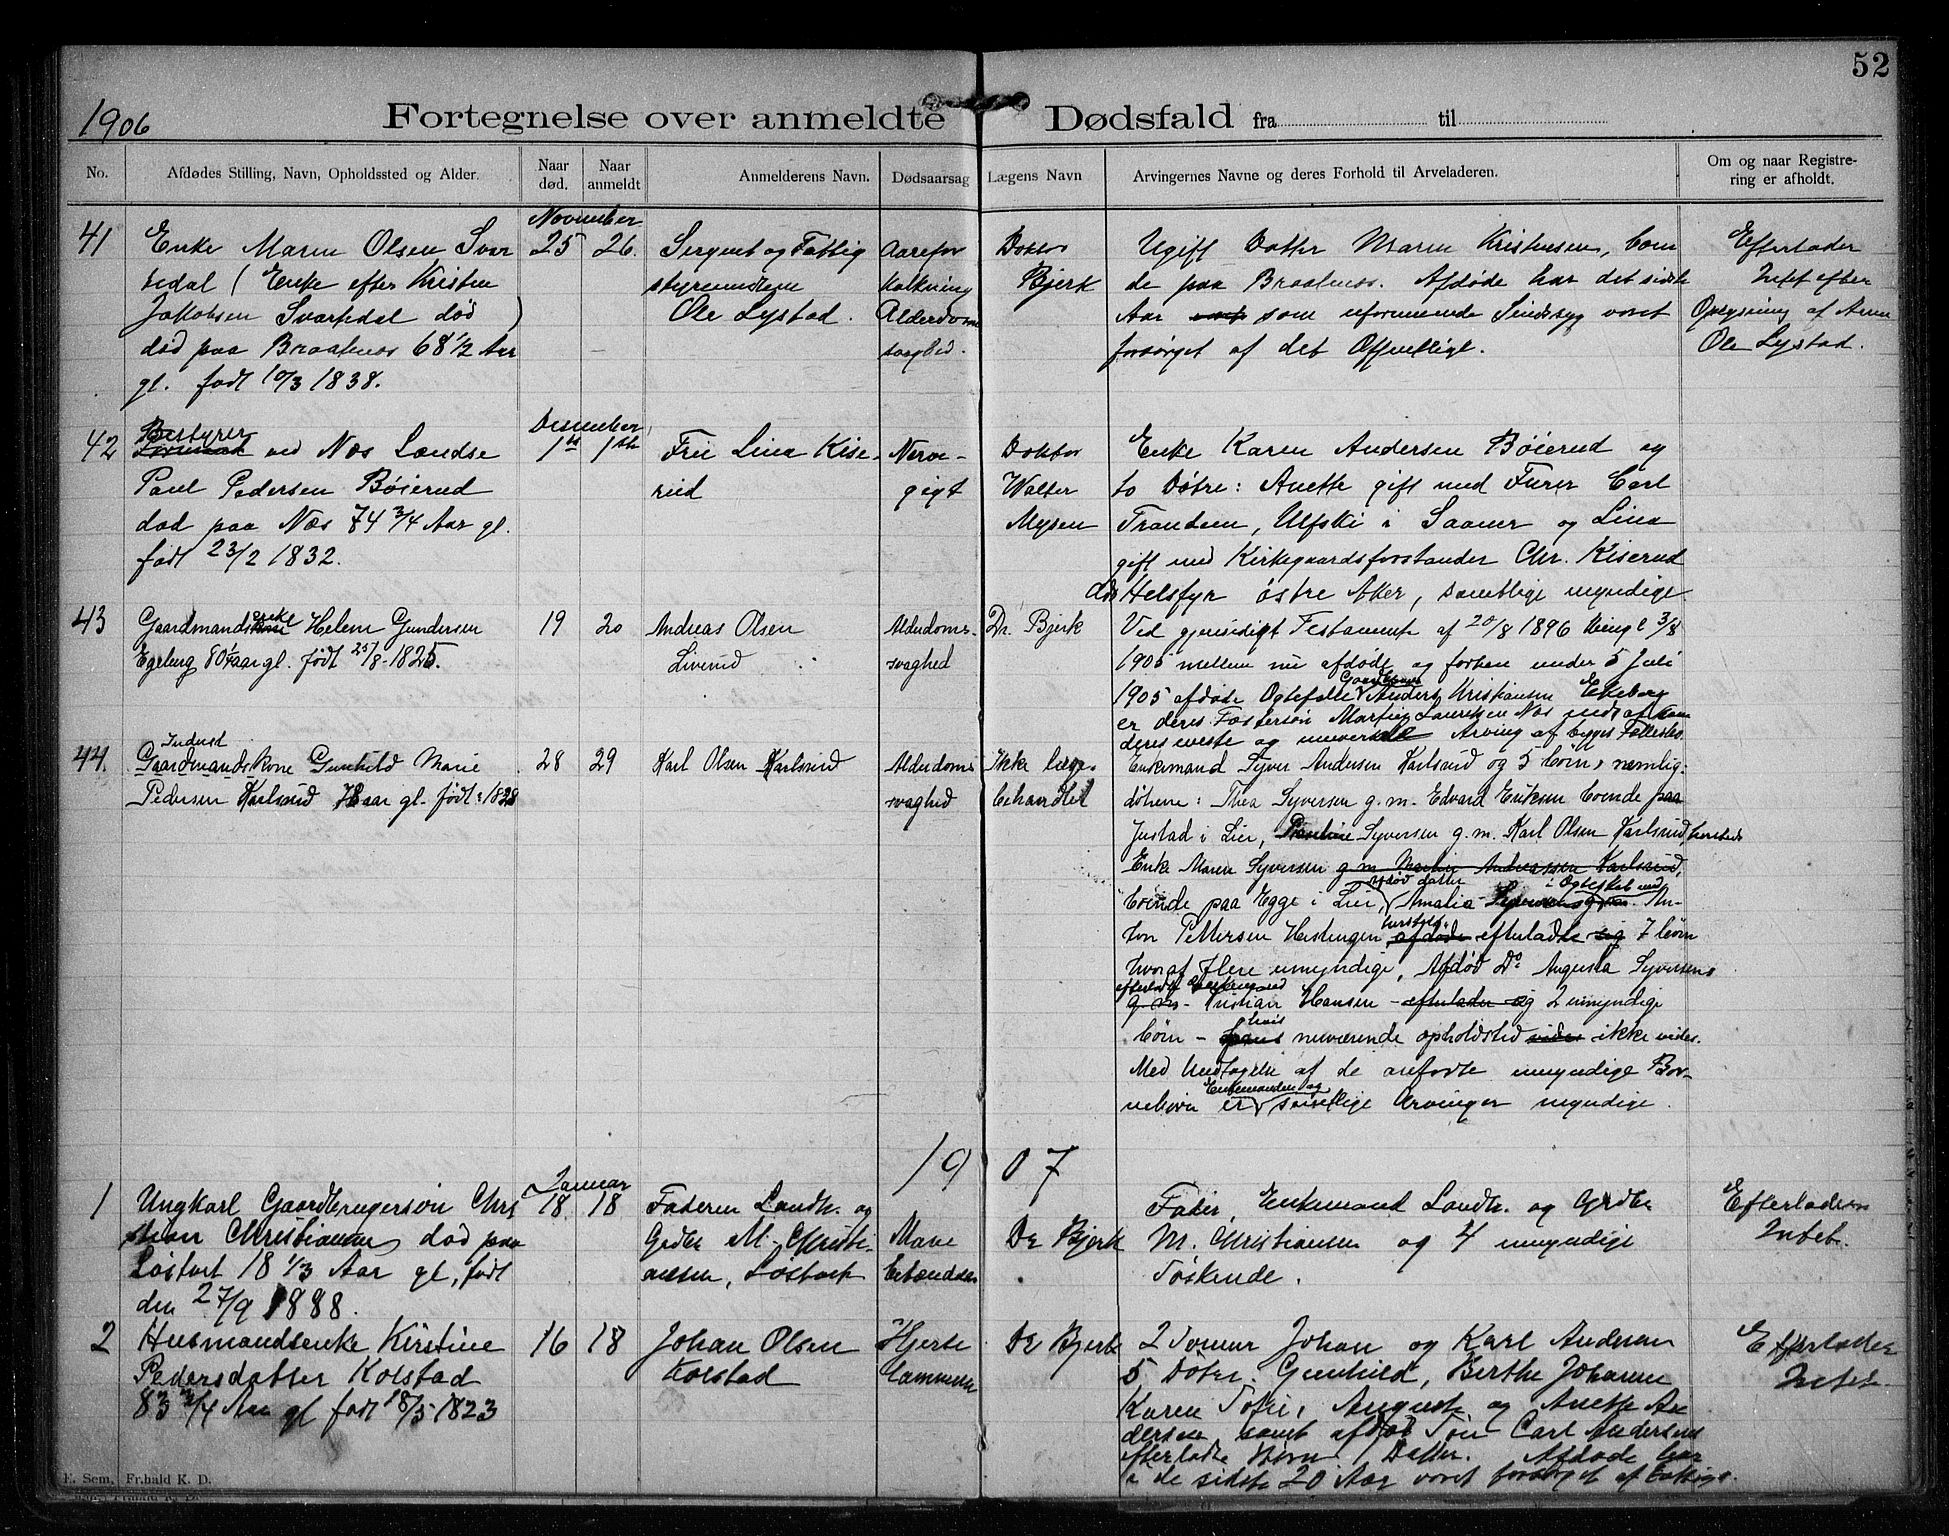 52
1906
Fortegnelse over anmeldte Dødsfald fra til
No.
Afdødes Stilling, Navn, Opholdssted og Alder.
Naar død.
Naar anmeldt
Anmelderens Navn.
Dødsaarsag
Lægens Navn
Arvingernes Navne og deres Forhold til Arveladeren.
Om og naar Registre-
ring er afholdt.
41
Enke Maren Olsen Svar
tedal ( Enke efter Kristen
Jakobsen Svartedal død )
død paa Braatenos 68 1/2 Aar
gl. født 10/3 1838.
November
25 26.
Sergent og Fattig
styremedlem
Ole Lystad.
Aarefor
kalkning
Alderdoms
svaghed.
Doktor
Bjerk
Ugift Datter Maren Kristensen, boen
de paa Braatenos. Afdøde har det sidste
Aar som uformuende Sindssyg været
forsørget af det Offentlige.
Efterlader
Intet efter
Oplysning af Anm
Ole Lystad.
42
Bestyrer
ved Næs Lændse
Paul Pedersen Bøierud
død paa Næs 74 3/4 Aar gl.
født 23/2 1832.
Desember
1ste 1ste
Frue Lina Kise-
rud
Nerve-
gigt
Doktor
Walter
Mysen
Enke Karen Andersen Bøierud og
to Døtre: Anette gift med Furer Carl
Trandem, Ulfski i Saaner og Lina
gift med Kirkegaardsforstander Chr. Kiserud
Helsfyr østre Aker, samtlige myndige.
43
Gaardmandsenke Helene Gundersen
Egeberg 80 1/3 aar gl. født 25/8-1825.
19 20
Andreas Olsen
Liverud
Alderdoms-
svaghed
Dr. Bjerk
Ved gjensidigt Testamente af 20/8 1896 thingl 3/8
1905 mellem nu afdøde og forhen under 5 Juli
1905 afdøde Ægtefælle Gaardbruger Anders Kristiansen Egeberg
er deres Fostersøn Martin Lauritsen Næs indsat som
deres eneste og universale Arving af begges Fællesbo.
44.
Inderst
Gaardmandskone Gunhild Marie
Pedersen Karlsrud aar gl. født: 1828
28 29
Karl Olsen Karlsrud
Alderdoms
svaghed
Ikke læge-
behandlet
Enkemand Syver Andersen Karlsrud og 5 børn, nemlig:
døtrene: Thea Syversen g.m. Edvard Eriksen boende paa
Justad i Lier, Pauline Syversen g.m. Karl Olsen Karlsrud, hersteds
Enke Maren Syversen g.m. Martin Andreassen Karlsrud,
boende paa Egge i Lier, afdød datter Amalia i Ægteskab med An-
ton Pettersen Hestengen hersteds afdøde efterladte sig 7 børn
hvoraf flere umyndige, Afdød Do Augusta Syversens
efterladte Enkemand Kristian Hansen - efterlader og 2 umyndige
børn - hvis nuværende opholdsted vides ikke vides.
Med Undtagelse af de anførte umyndige Bør-
nebørn er Enkemanden og samtlige Arvinger myndige.
1907
1
Ungkarl Gaardbrugersøn Chri
stian Christiansen død paa
Løstvet 18 1/3 Aar gl, født
den 27/9 1888.
Januar
18 18
Faderen Landh. og
Grdbr M. Christi-
ansen, Løstvet
Mave
betændelse
Dr Bjerk
Fader, Enkemand Landh. og Grdbr
M. Christiansen og 4 umyndige
Søskende.
Efterladere
Intet.
2
Husmandsenke Kirstine
Pedersdatter Kolstad
83 3/4 Aar gl født 18/5-1823
16 18
Johan Olsen
Kolstad
Hjerte
lammelse
Dr Bjerk
2 Sønner Johan og Karl Andersen
5 Døtre. Gunhild, Berthe Johanne
Karen Sofie, Auguste og Anette An
dersen samt afdød Søn Carl Andersens
efterladte Børn 1 Datter. Afdøde har
i de sidste 20 Aar været forsørget af Fattigv.
Efterlader
Intet
E. Sem, Fr.hald K. D.